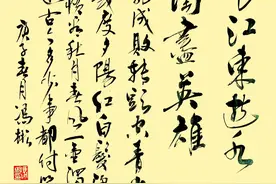 江東逝水
淘盡英雄
成敗轉頭空青山
幾度夕陽紅白髮
秋月春風一壺濁
古今多少事都付
庚子春月冯彬